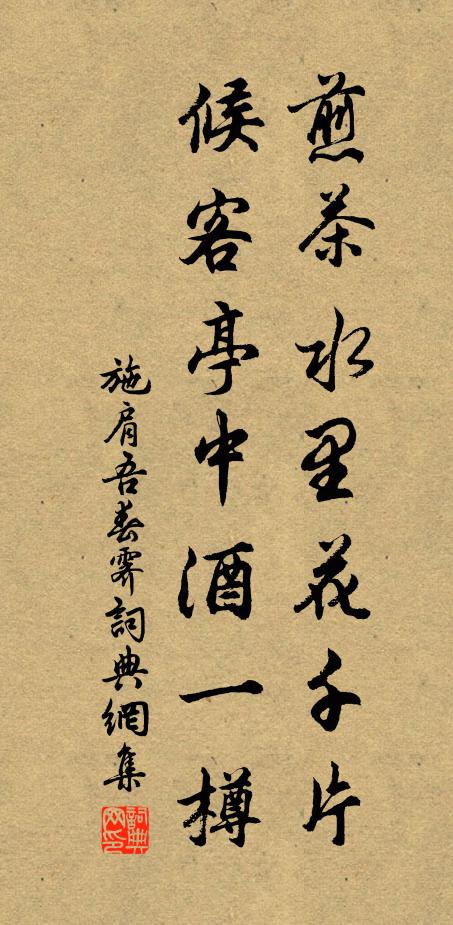 煎茶水里花千片
候客亭中酒一樽
施肩吾春霽詞典網集
詞典網印